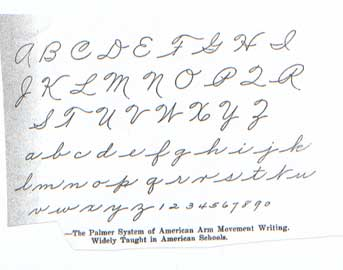 A B C D E F G H I
J K L M N O P Q R
S T U V W X Y Z
a b c d e f g h i j k
l m n o p q r s t u
v w x y z 1 2 3 4 5 6 7 8 9 0
—The Palmer System of American Arm Movement Writing.
Widely Taught in American Schools.